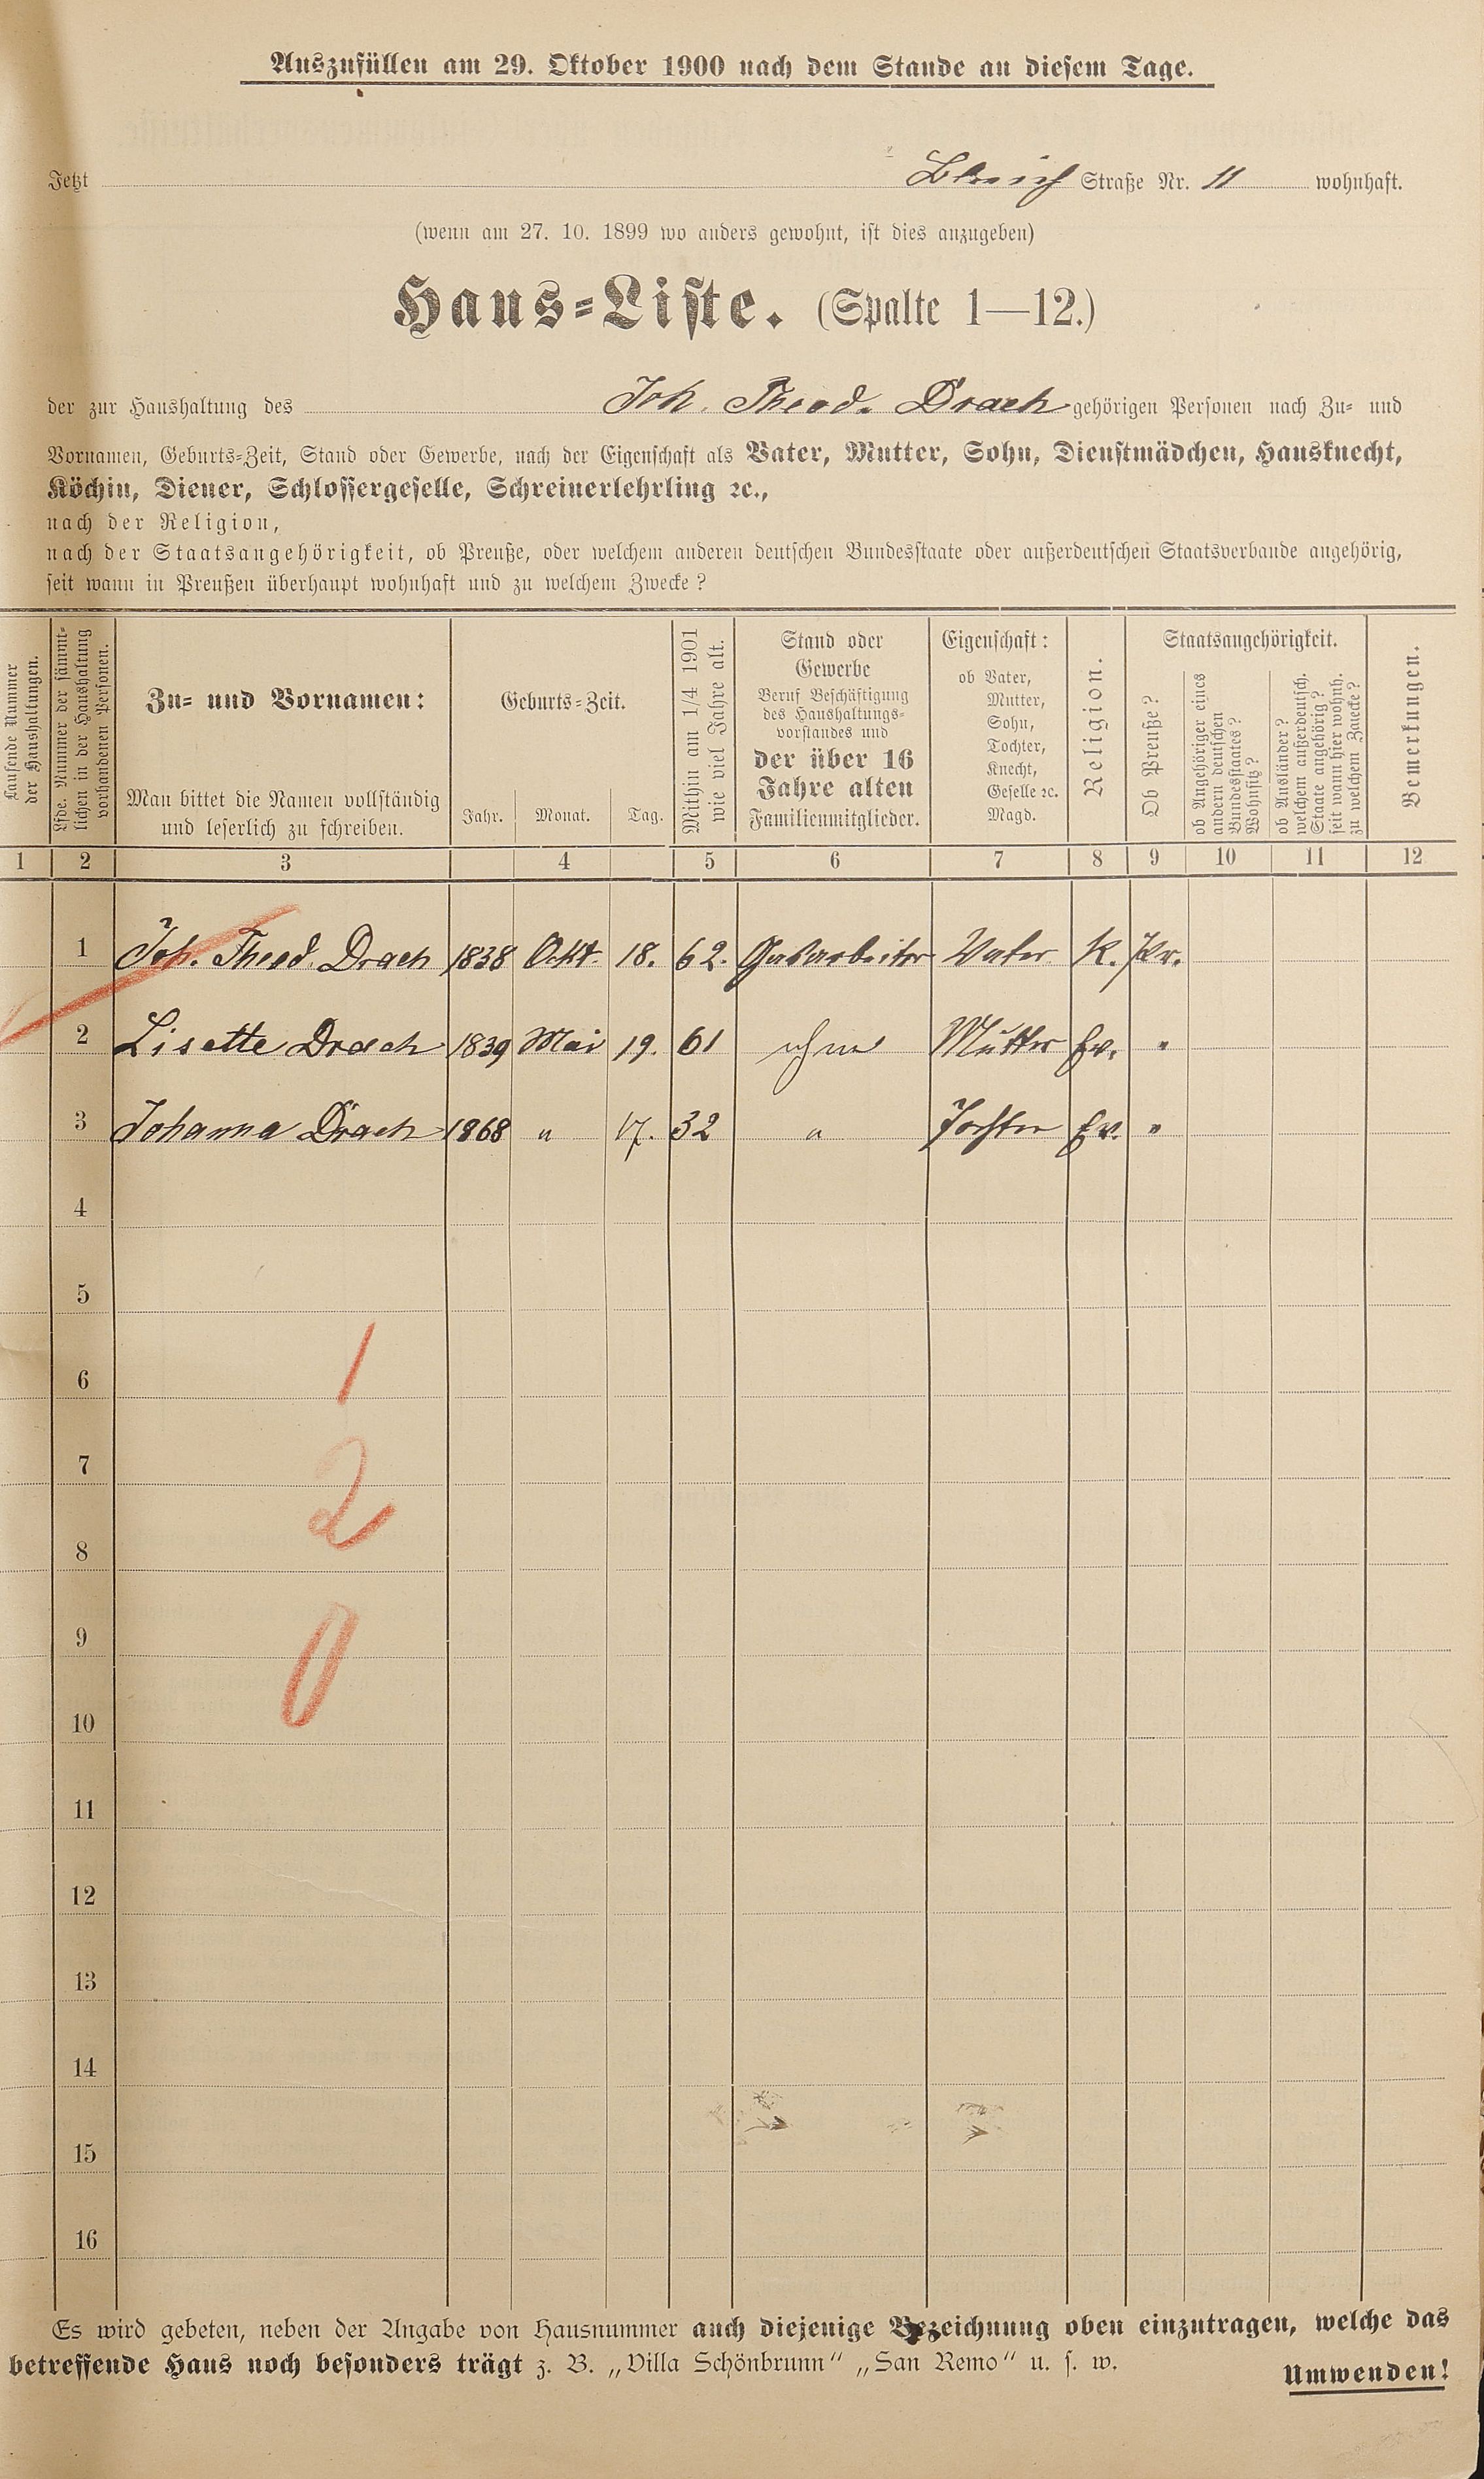 Auszufüllen am 29. Oktober 1900 nach dem Stande an diesem Tage.
Jetzt Bleich Straße Nr. 11 wohnhaft.
(wenn am 27. 10. 1899 wo anders gewohnt, ist dies anzugeben)
Haus-Liste. (Spalte 1—12.)
der zur Haushaltung des Joh. Theod. Drach gehörigen Personen nach Zu- und
Vornamen, Geburts-Zeit, Stand oder Gewerbe, nach der Eigenschaft als Vater, Mutter, Sohn, Dienstmädchen, Hausknecht,
Köchin, Diener, Schlossergeselle, Schreinerlehrling ꝛc.,
nach der Religion,
nach der Staatsangehörigkeit, ob Preuße, oder welchem anderen deutschen Bundesstaate oder außerdeutschen Staatsverbande angehörig,
seit wann in Preußen überhaupt wohnhaft und zu welchem Zwecke?
Laufende Nummer
der Haushaltungen.
Lfde. Nummer der sämmt-
lichen in der Haushaltung
vorhandenen Personen.
Zu- und Vornamen:
Man bittet die Namen vollständig
und leserlich zu schreiben.
Geburts-Zeit.
Jahr. Monat. Tag.
Mithin am 1/4 1901
wie viel Jahre alt.
Stand oder
Gewerbe
Beruf Beschäftigung
des Haushaltungs-
vorstandes und
der über 16
Jahre alten
Familienmitglieder.
Eigenschaft:
ob Vater,
Mutter,
Sohn,
Tochter,
Knecht,
Geselle ꝛc.
Magd.
Religion.
Staatsangehörigkeit.
Ob Preuße?
ob Angehöriger eines
andern deutschen
Bundesstaates?
Wohnsitz?
ob Ausländer?
welchem außerdeutsch.
Staate angehörig?
seit wann hier wohnh.
zu welchem Zwecke?
Bemerkungen.
1 2 3 4 5 6 7 8 9 10 11 12
1 Joh. Theod. Drach 1838 Okt. 18. 62. Gasarbeiter Vater K. Pr.
2 Lisette Drach 1839 Mai 19. 61 ohne Mutter Ev. "
3 Johanna Drach 1868 " 17. 32 " Tochter Ev. "
4
5
6
1
7
2
8
9
0
10
11
12
13
14
15
16
Es wird gebeten, neben der Angabe von Hausnummer auch diejenige Bezeichnung oben einzutragen, welche das
betreffende Haus noch besonders trägt z. B. „Villa Schönbrunn“ „San Remo“ u. s. w.
Umwenden!